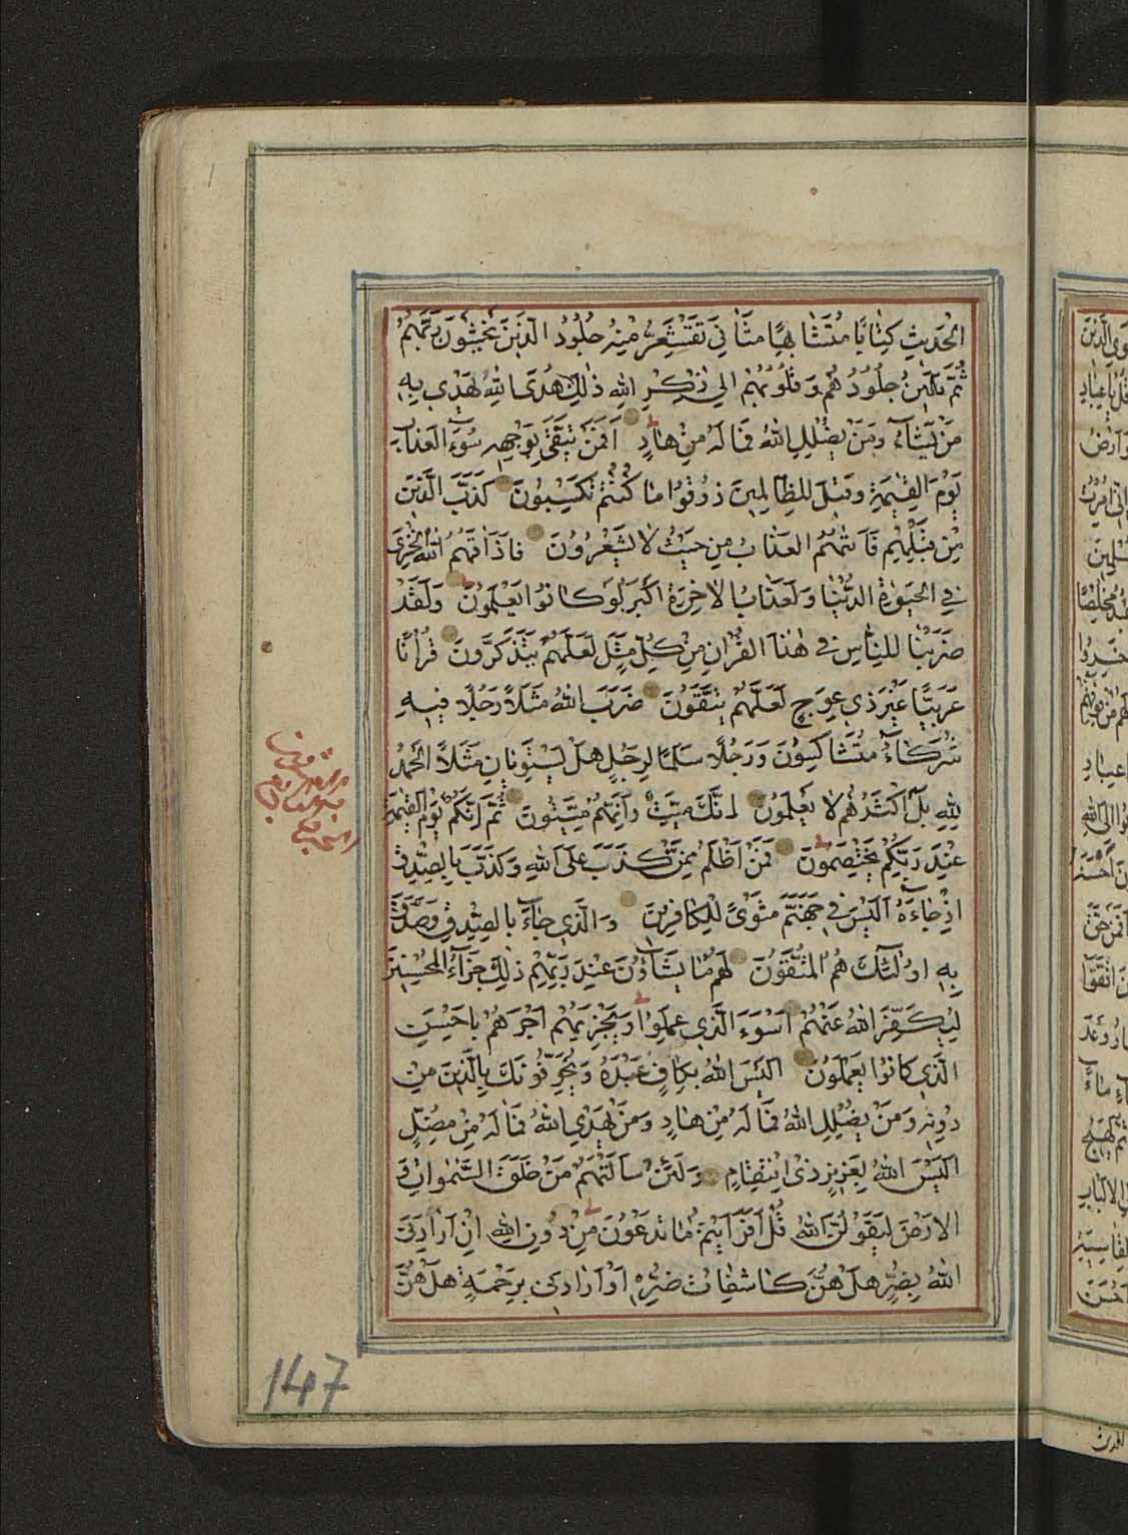 الْحَدِيثِ كِتَابًا مُتَشَابِهًا مَثَانِيَ تَقْشَعِرُّ مِنْهُ جُلُودُ الَّذِينَ يَخْشَوْنَ رَبَّهُمْ
ثُمَّ تَلِينُ جُلُودُهُمْ وَقُلُوبُهُمْ اِلٰى ذِكْرِ اللهِ ذٰلِكَ هُدَى اللهِ يَهْدِي بِهِ
مَنْ يَشَآءُ وَمَنْ يُضْلِلِ اللهُ فَمَا لَهُ مِنْ هَادٍ اَفَمَنْ يَتَّقِي بِوَجْهِهِ سُوٓءَ الْعَذَابِ
يَوْمَ الْقِيٰمَةِ وَقِيلَ لِلظَّالِمِينَ ذُوقُوا مَا كُنْتُمْ تَكْسِبُونَ كَذَّبَ الَّذِينَ
مِنْ قَبْلِهِمْ فَاَتٰهُمُ الْعَذَابُ مِنْ حَيْثُ لَا يَشْعُرُونَ فَاَذَاقَهُمُ اللهُ الْخِزْيَ
فِي الْحَيٰوةِ الدُّنْيَا وَلَعَذَابُ الْاٰخِرَةِ اَكْبَرُ لَوْ كَانُوا يَعْلَمُونَ وَلَقَدْ
ضَرَبْنَا لِلنَّاسِ فِي هٰذَا الْقُرْاٰنِ مِنْ كُلِّ مَثَلٍ لَعَلَّهُمْ يَتَذَكَّرُونَ قُرْاٰنًا
عَرَبِيًّا غَيْرَ ذِي عِوَجٍ لَعَلَّهُمْ يَتَّقُونَ ضَرَبَ اللهُ مَثَلًا رَجُلًا فِيهِ
شُرَكَآءُ مُتَشَاكِسُونَ وَرَجُلًا سَلَمًا لِرَجُلٍ هَلْ يَسْتَوِيَانِ مَثَلًا الْحَمْدُ
لِلّٰهِ بَلْ اَكْثَرُهُمْ لَا يَعْلَمُونَ اِنَّكَ مَيِّتٌ وَاِنَّهُمْ مَيِّتُونَ ثُمَّ اِنَّكُمْ يَوْمَ الْقِيٰمَةِ
عِنْدَ رَبِّكُمْ تَخْتَصِمُونَ فَمَنْ اَظْلَمُ مِمَّنْ كَذَبَ عَلَى اللهِ وَكَذَّبَ بِالصِّدْقِ
اِذْ جَآءَهُ اَلَيْسَ فِي جَهَنَّمَ مَثْوًى لِلْكَافِرِينَ وَالَّذِي جَآءَ بِالصِّدْقِ وَصَدَّقَ
بِهِ اُولٰٓئِكَ هُمُ الْمُتَّقُونَ لَهُمْ مَا يَشَآؤُنَ عِنْدَ رَبِّهِمْ ذٰلِكَ جَزَآءُ الْمُحْسِنِينَ
لِيُكَفِّرَ اللهُ عَنْهُمْ اَسْوَءَ الَّذِي عَمِلُوا وَيَجْزِيَهُمْ اَجْرَهُمْ بِاَحْسَنِ
الَّذِي كَانُوا يَعْمَلُونَ اَلَيْسَ اللهُ بِكَافٍ عَبْدَهُ وَيُخَوِّفُونَكَ بِالَّذِينَ مِنْ
دُونِهِ وَمَنْ يُضْلِلِ اللهُ فَمَا لَهُ مِنْ هَادٍ وَمَنْ يَهْدِي اللهُ فَمَا لَهُ مِنْ مُضِلٍّ
اَلَيْسَ اللهُ بِعَزِيزٍ ذِي انْتِقَامٍ وَلَئِنْ سَاَلْتَهُمْ مَنْ خَلَقَ السَّمٰوَاتِ وَ
الْاَرْضَ لَيَقُولُنَّ اللهُ قُلْ اَفَرَاَيْتُمْ مَا تَدْعُونَ مِنْ دُونِ اللهِ اِنْ اَرَادَنِيَ
اللهُ بِضُرٍّ هَلْ هُنَّ كَاشِفَاتُ ضُرِّهِ اَوْ اَرَادَنِي بِرَحْمَةٍ هَلْ هُنَّ
147